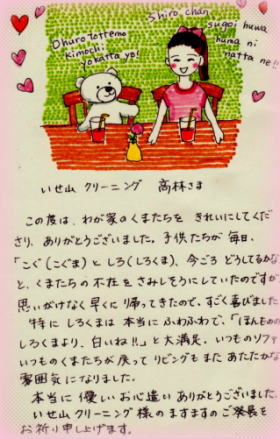 Ohuro Tottemo
Kimochi
yokatta yo!
Shiro chan
sugoi huwa
huwa ni
natta ne!!
いせ山 クリーニング 高林さま
この度は、わが家のくまたちを きれいにしてくだ
さり、ありがとうございました。子供たちが 毎日、
「こぐ(こぐま)と しろ(しろくま)、今ごろ どうしてるかな
と、くまたちの 不在を さみしそうにしていたのですが
思いがけなく 早くに 帰ってきたので、すごく喜びました
特に しろくまは 本当に ふわふわで、「ほんものの
しろくまより、白いね!!」と 大満足。いつものソファ
いつものくまたちが 戻って リビングも また あたたかな
雰囲気になりました。
本当に 優しい お心遣い ありがとうございました。
いせ山クリーニング 様の ますますの ご発展を
お祈り申し上げます。